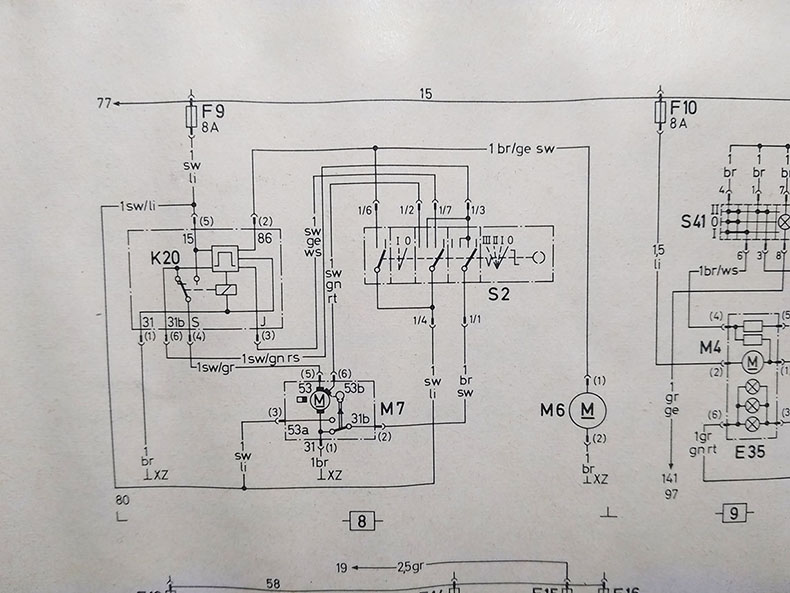 77
15
F9
8A
F10
8A
1
sw
li
1 br/ge sw
1
br
1
br
1
br
4
1
7
1sw/li
(5)
(2)
1/6
1/2
1/7
1/3
1
sw
ge
ws
1
sw
gn
rt
15
86
K20
I O
III II I O
S41
II
O
I
S2
6
3
8
1,5
li
1br/ws
31
31b
S
J
(1)
(6)
(4)
(3)
1/4
1/1
1sw/gn rs
1sw/gr
(5)
(6)
53
53b
M
M7
(3)
53a
31b
(2)
31
(1)
1
sw
li
1
br
sw
1
sw
li
1
br
XZ
1br
XZ
M6
(1)
M
(2)
1
br
XZ
(4)
(5
M4
(2)
M
(1
1
gr
ge
(6)
(3
1gr
gn rt
E35
141
97
80
8
9
19
2,5gr
58
E15
E16